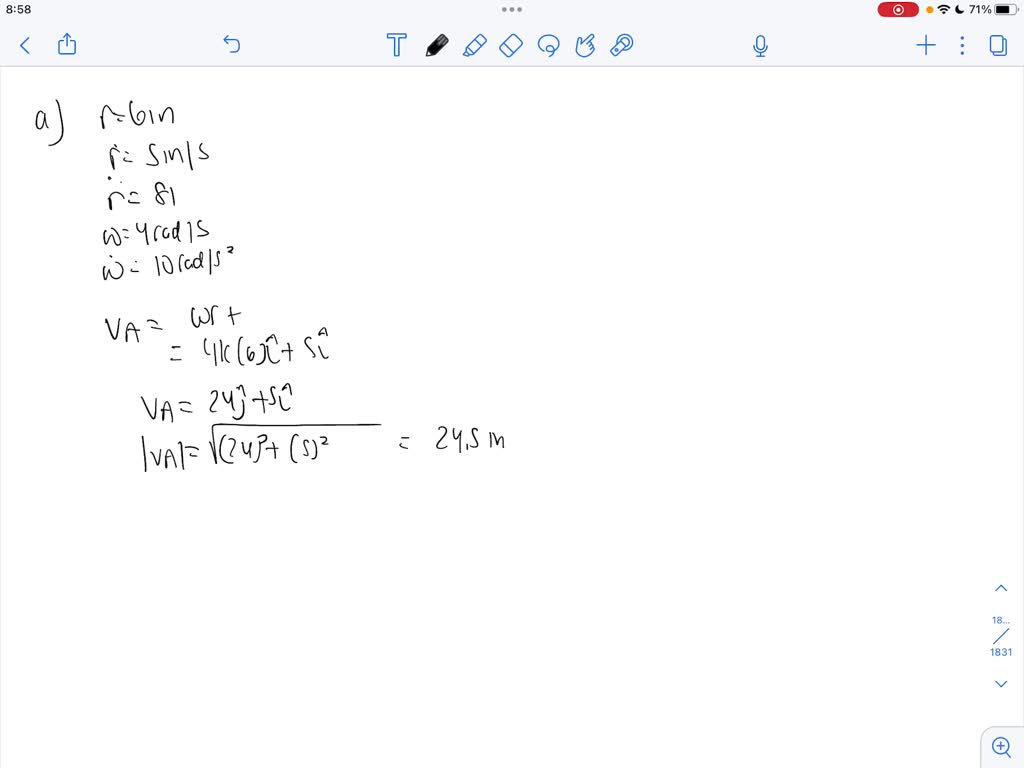 8:58
71%
a) r=6in
ṙ= 5in/s
r̈= 81
ω=4rad/s
ω̇= 10rad/s²
VA= ωr+
= 4k(6)î+5î
VA= 24ĵ+5î
|VA|=√(24)²+(5)² = 24.5 m
18...
1831